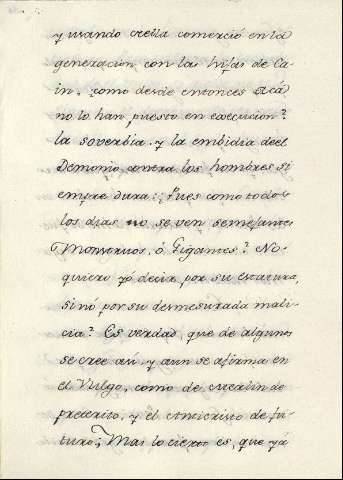 y usando de ella comerció en la
generacion con las hijas de Ca-
in. como desde entonces acá
no lo han puesto en execucion?
la soverbia. y la embidia deel
Demonio, contra los hombres si
empre dura: Pues como todos
los dias no se ven semejantes
Monstruos, ò Gigantes? No
quiero yó decir, por su estatura,
sinó por su desmesurada mali
cia? Es verdad, que de algunos
se cree asi. y aun se afirma en
el Vulgo, como de Merlin de
preterito, y el Anticristo de fu-
turo; Mas lo cierto es, que yá